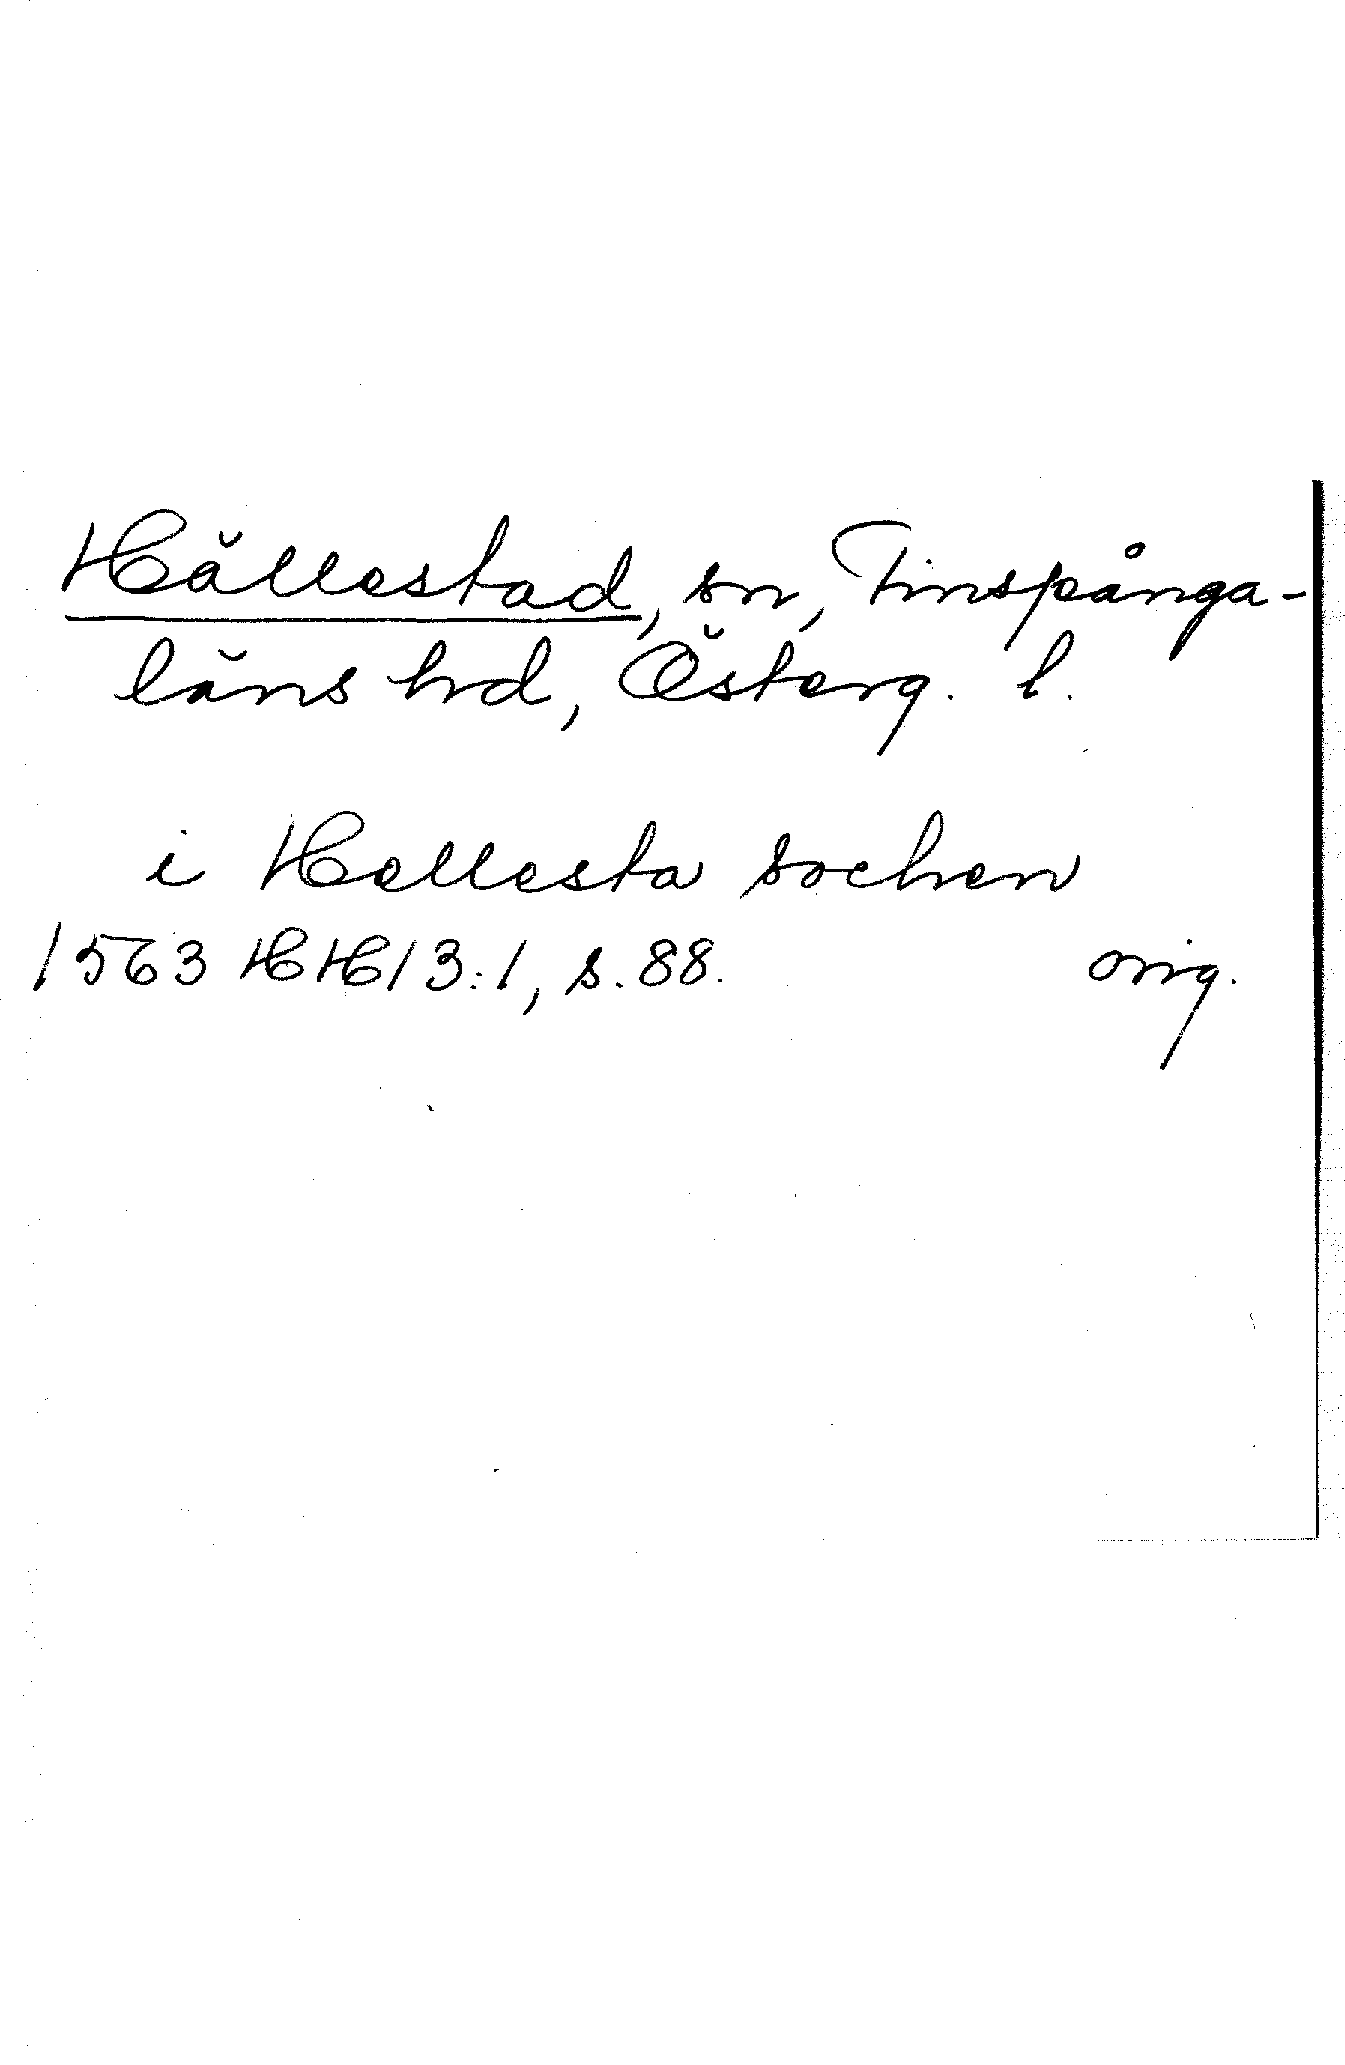 Hällestad, sn, Finspånga-
läns hd, Österg. l.
i Hellesta sochen
1563 HH 13:1, s. 88. orig.